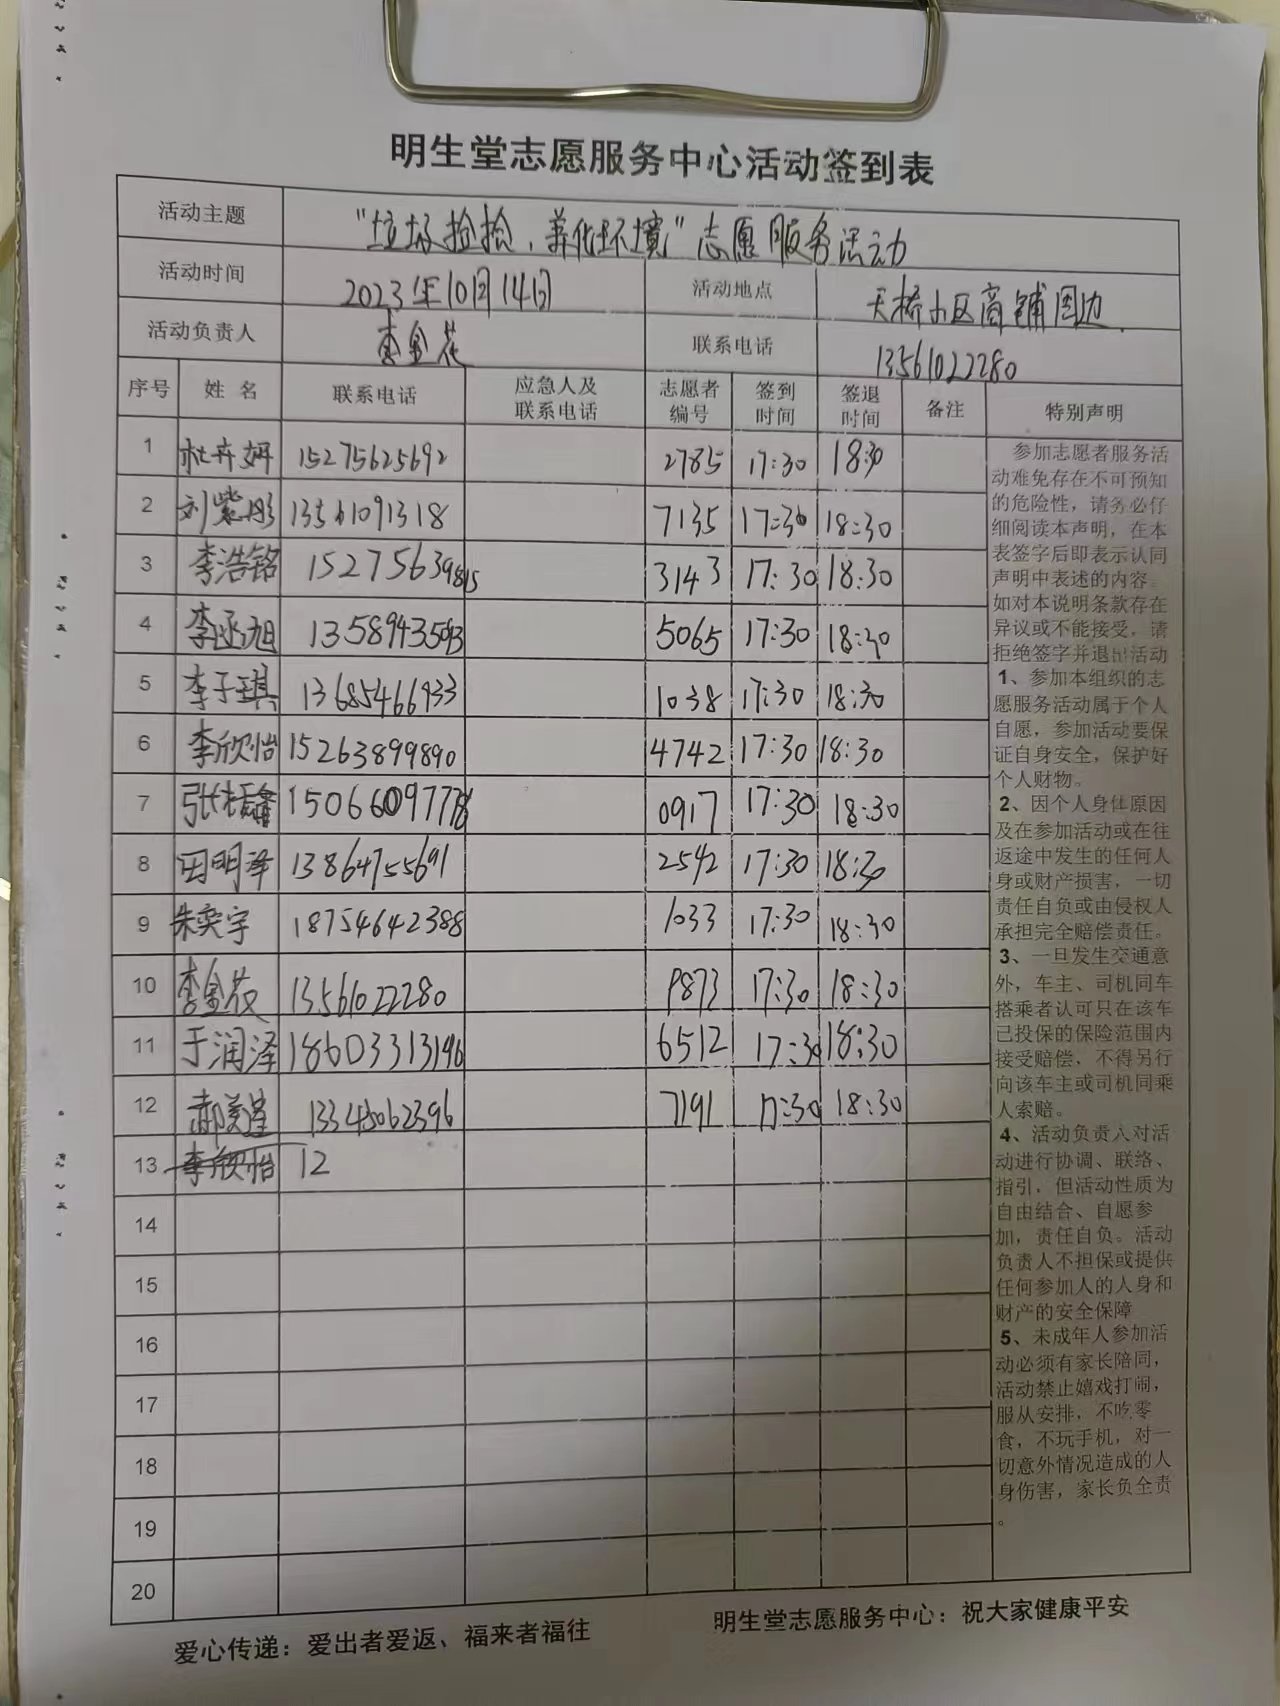 明生堂志愿服务中心活动签到表
活动主题 “垃圾捡捡，美化环境”志愿服务活动
活动时间 2023年10月14日 活动地点 天桥小区商铺周边
活动负责人 李金花 联系电话 13561022280
序号 姓名 联系电话 应急人及联系电话 志愿者编号 签到时间 签退时间 备注 特别声明
1 杜卉妍 15275625692 2785 17:30 18:30
2 刘紫彤 13561091318 7135 17:30 18:30
3 李浩铭 15275639815 3143 17:30 18:30
4 李函旭 13589435093 5065 17:30 18:30
5 李子琪 13685466933 1038 17:30 18:30
6 李欣怡 15263899890 4742 17:30 18:30
7 0917 17:30 18:30
8 田明泽 13864755691 2542 17:30 18:30
9 朱奕宇 18754642388 1033 17:30 18:30
10 李金花 13561022280 9873 17:30 18:30
11 于润泽 18603313196 6512 17:30 18:30
12 7191 17:30 18:30
13 李欣怡 12
14
15
16
17
18
19
20
参加志愿者服务活
动难免存在不可预知
的危险性，请务必仔
细阅读本声明，在本
表签字后即表示认同
声明中表述的内容。
如对本说明条款存在
异议或不能接受，请
拒绝签字并退出活动
1、参加本组织的志
愿服务活动属于个人
自愿，参加活动要保
证自身安全，保护好
个人财物。
2、因个人身体原因
及在参加活动或在往
返途中发生的任何人
身或财产损害，一切
责任自负或由侵权人
承担完全赔偿责任。
3、一旦发生交通意
外，车主、司机同车
搭乘者认可只在该车
已投保的保险范围内
接受赔偿，不得另行
向该车主或司机同乘
人索赔。
4、活动负责人对活
动进行协调、联络、
指引，但活动性质为
自由结合、自愿参
加，责任自负。活动
负责人不担保或提供
任何参加人的人身和
财产的安全保障
5、未成年人参加活
动必须有家长陪同，
活动禁止嬉戏打闹，
服从安排，不吃零
食，不玩手机，对一
切意外情况造成的人
身伤害，家长负全责
。
爱心传递：爱出者爱返、福来者福往 明生堂志愿服务中心：祝大家健康平安